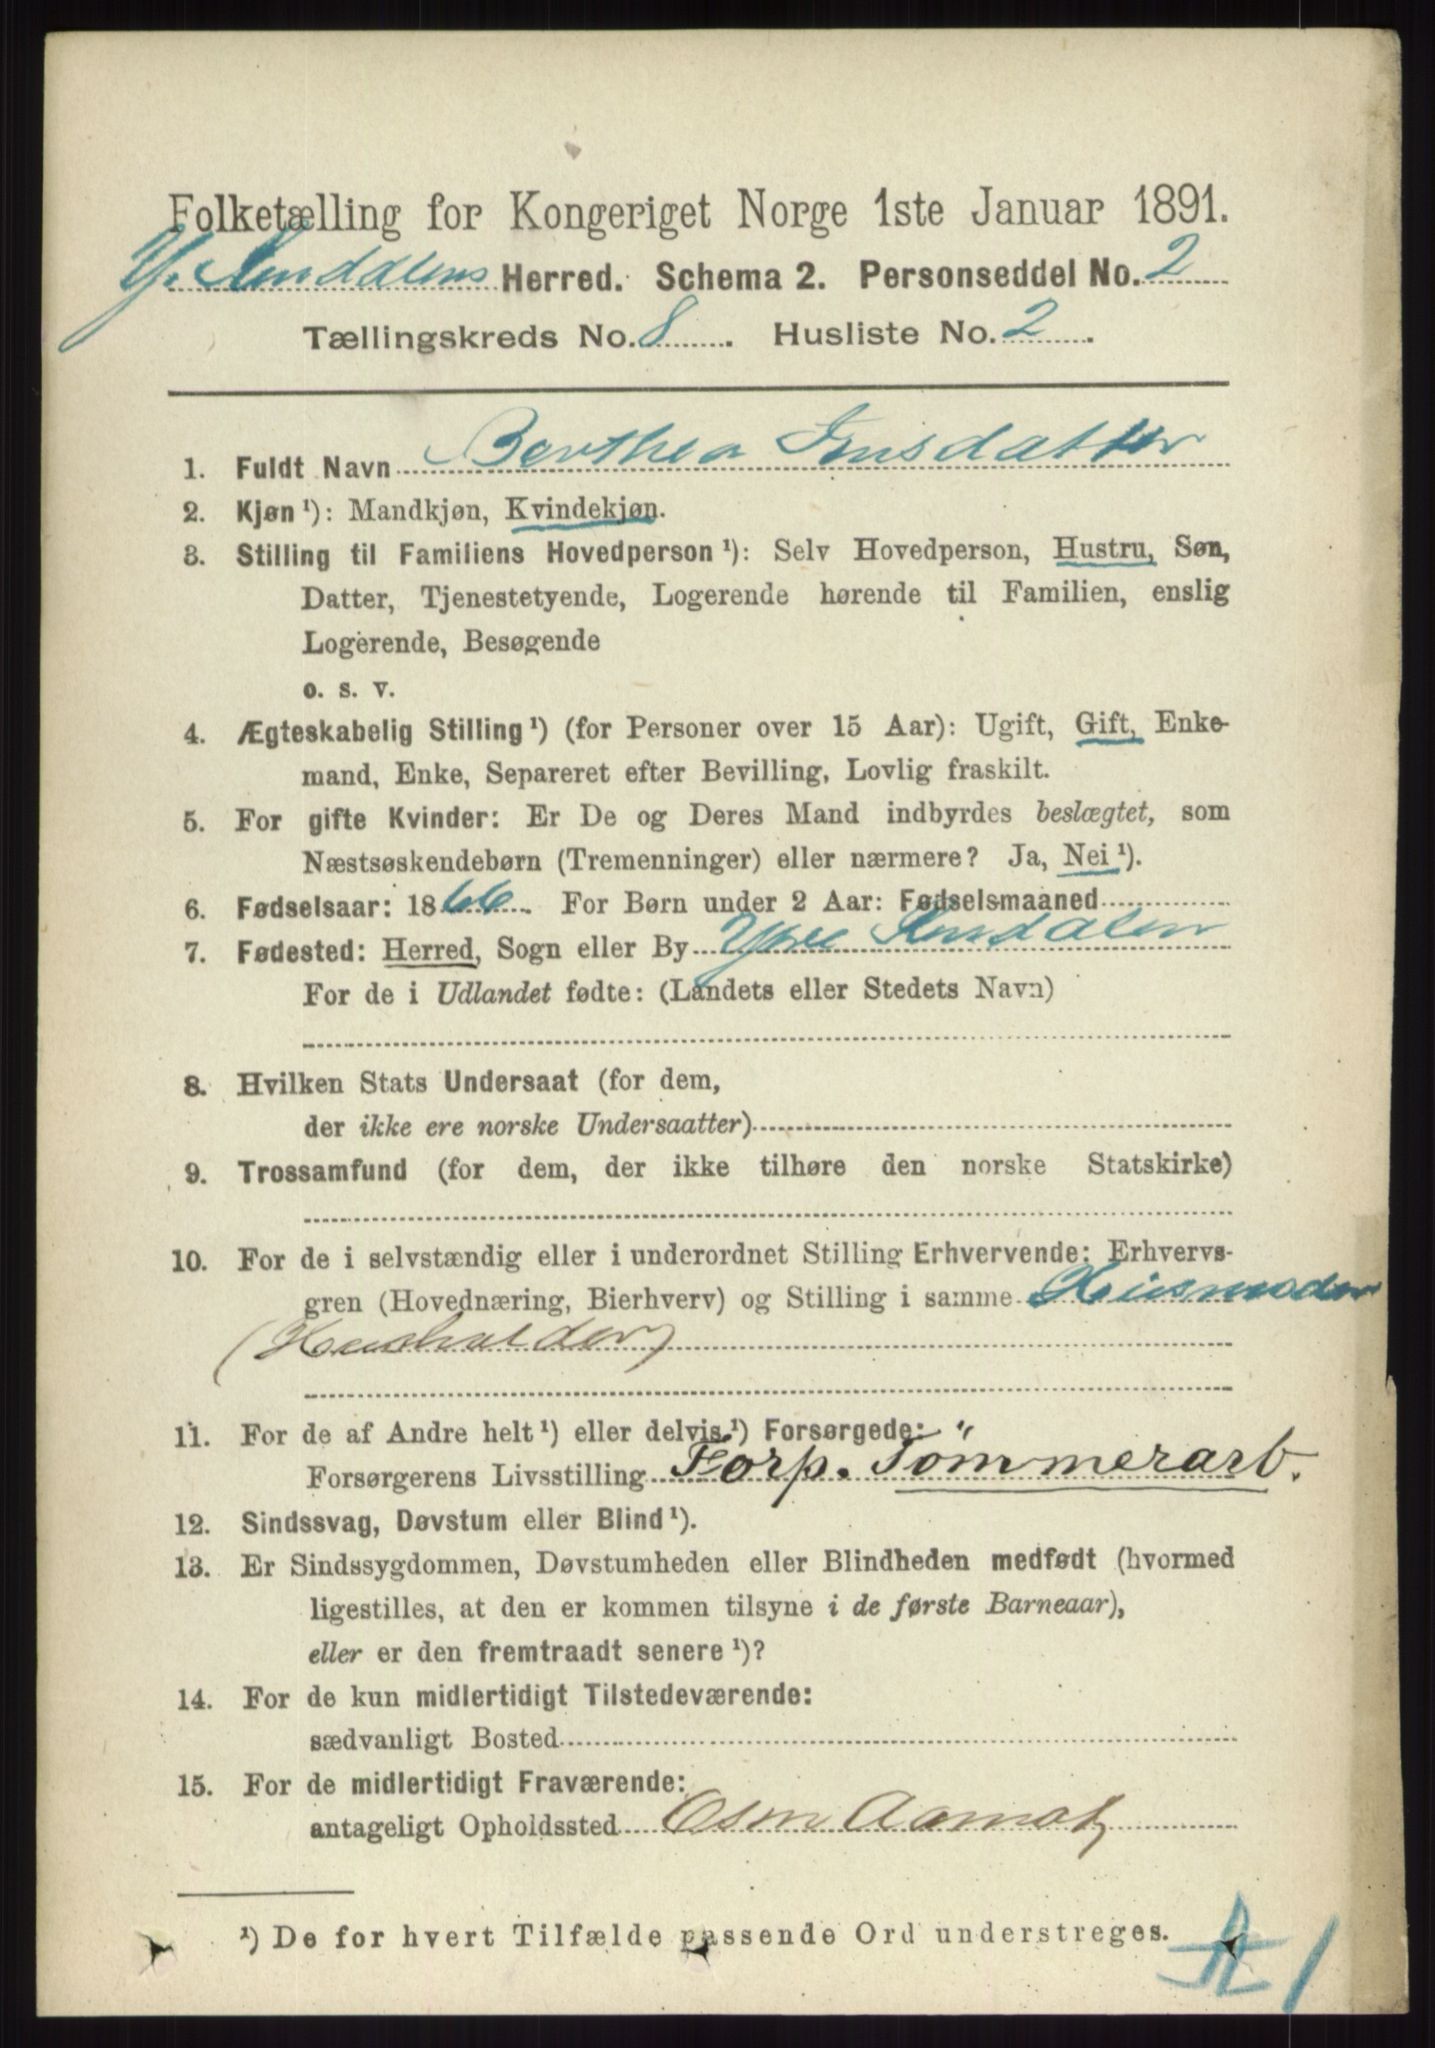 Folketælling for Kongeriget Norge 1ste Januar 1891.
Y. Rendalens Herred. Schema 2. Personseddel No. 2
Tællingskreds No. 8. Husliste No. 2.
1. Fuldt Navn Berthea Jensdatter
2. Kjøn ¹): Mandkjøn, Kvindekjøn.
3. Stilling til Familiens Hovedperson ¹): Selv Hovedperson, Hustru, Søn,
Datter, Tjenestetyende, Logerende hørende til Familien, enslig
Logerende, Besøgende
o. s. v.
4. Ægteskabelig Stilling ¹) (for Personer over 15 Aar): Ugift, Gift, Enke-
mand, Enke, Separeret efter Bevilling, Lovlig fraskilt.
5. For gifte Kvinder: Er De og Deres Mand indbyrdes beslægtet, som
Næstsøskendebørn (Tremenninger) eller nærmere? Ja, Nei ¹).
6. Fødselsaar: 1866. For Børn under 2 Aar: Fødselsmaaned
7. Fødested: Herred, Sogn eller By Ytre Rendalen
For de i Udlandet fødte: (Landets eller Stedets Navn)
8. Hvilken Stats Undersaat (for dem,
der ikke ere norske Undersaatter)
9. Trossamfund (for dem, der ikke tilhøre den norske Statskirke)
10. For de i selvstændig eller i underordnet Stilling Erhvervende: Erhvervs-
gren (Hovednæring, Bierhverv) og Stilling i samme Husmoder
(Husholder)
11. For de af Andre helt ¹) eller delvis ¹) Forsørgede: "
Forsørgerens Livsstilling Forp. Tømmerarb.
12. Sindssvag, Døvstum eller Blind ¹).
13. Er Sindssygdommen, Døvstumheden eller Blindheden medfødt (hvormed
ligestilles, at den er kommen tilsyne i de første Barneaar),
eller er den fremtraadt senere ¹)?
14. For de kun midlertidigt Tilstedeværende:
sædvanligt Bosted
15. For de midlertidigt Fraværende:
antageligt Opholdssted Aamot
¹) De for hvert Tilfælde passende Ord understreges.
1